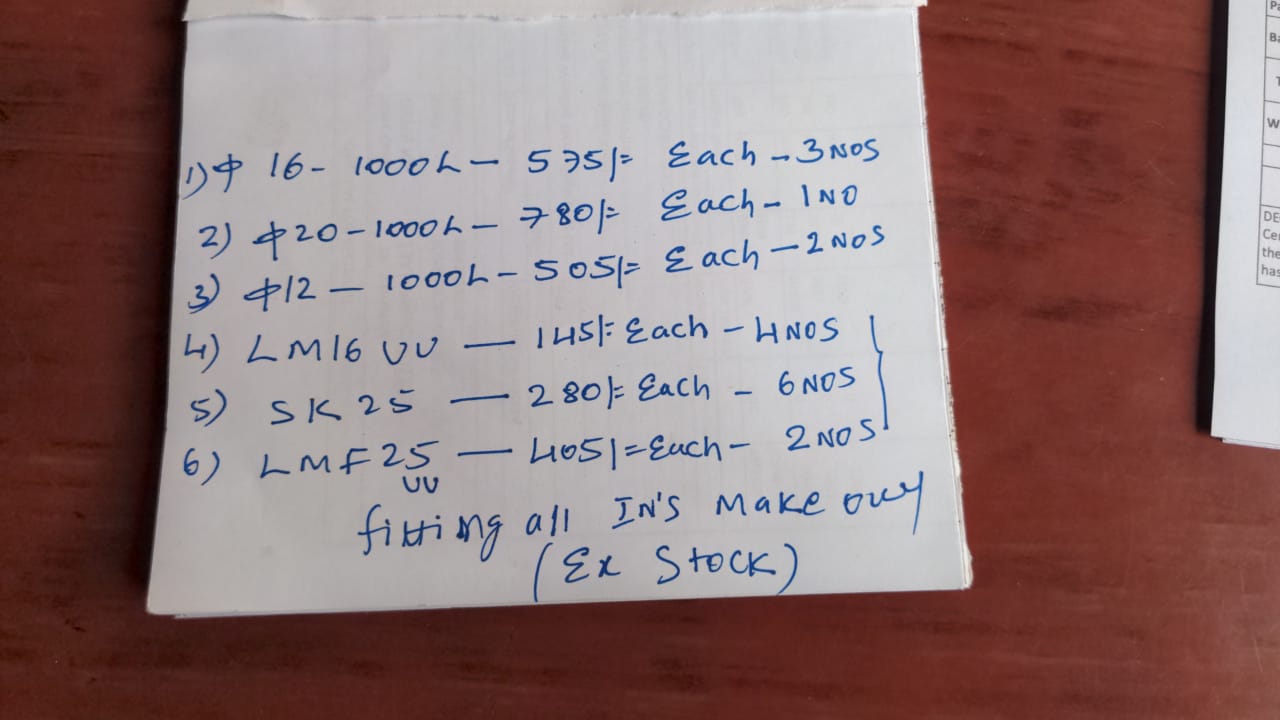 1) ф 16 - 1000L - 575/= Each - 3 NOS
2) ф20 - 1000L - 780/= Each - 1 NO
3) ф12 - 1000L - 505/= Each - 2 NOS
4) LM16 UU - 145/= Each - 4 NOS
5) SK 25 - 280/= Each - 6 NOS
6) LMF25 - 405/= Each - 2 NOS
UU
fitting all IN'S Make
(Ex Stock)
Pa
Ba
T
W
DE
Cer
the
has